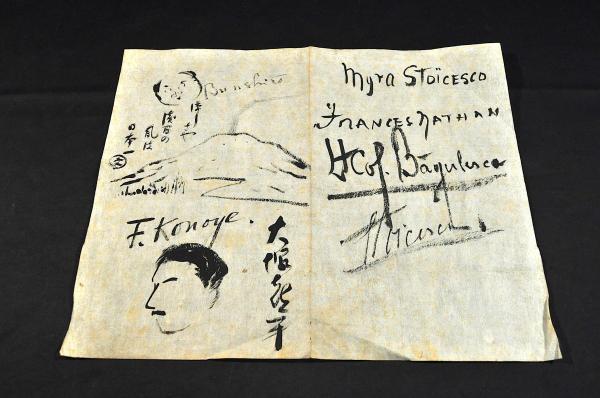 Bunshiro
ほしや
浅間の
風は
日本一
F. Konoye.
Myra Stoïcesco
Frances Nathan
Lt Col. Băgulescu
Stoicesco